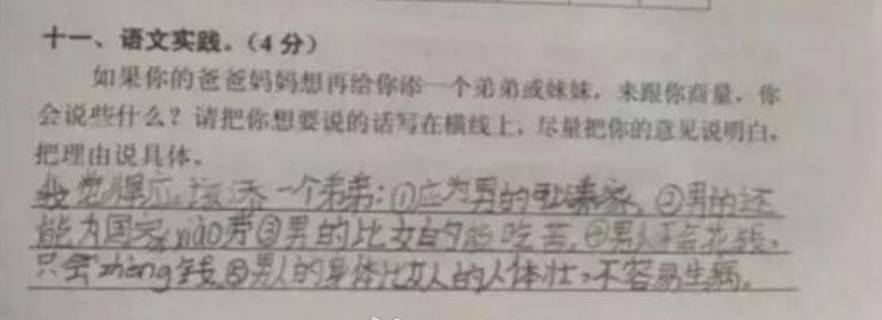 十一、语文实践。（4分）
如果你的爸爸妈妈想再给你添一个弟弟或妹妹，来跟你商量，你
会说些什么？请把你想要说的话写在横线上，尽量把你的意见说明白，
把理由说具体。
我觉得应该添一个弟弟：①应为男的 家。②男的还
能为国家xiào劳③男的比女的能吃苦。④男人不会花钱，
只会zhèng钱。⑤男人的身体比女人的人体壮，不容易生病。